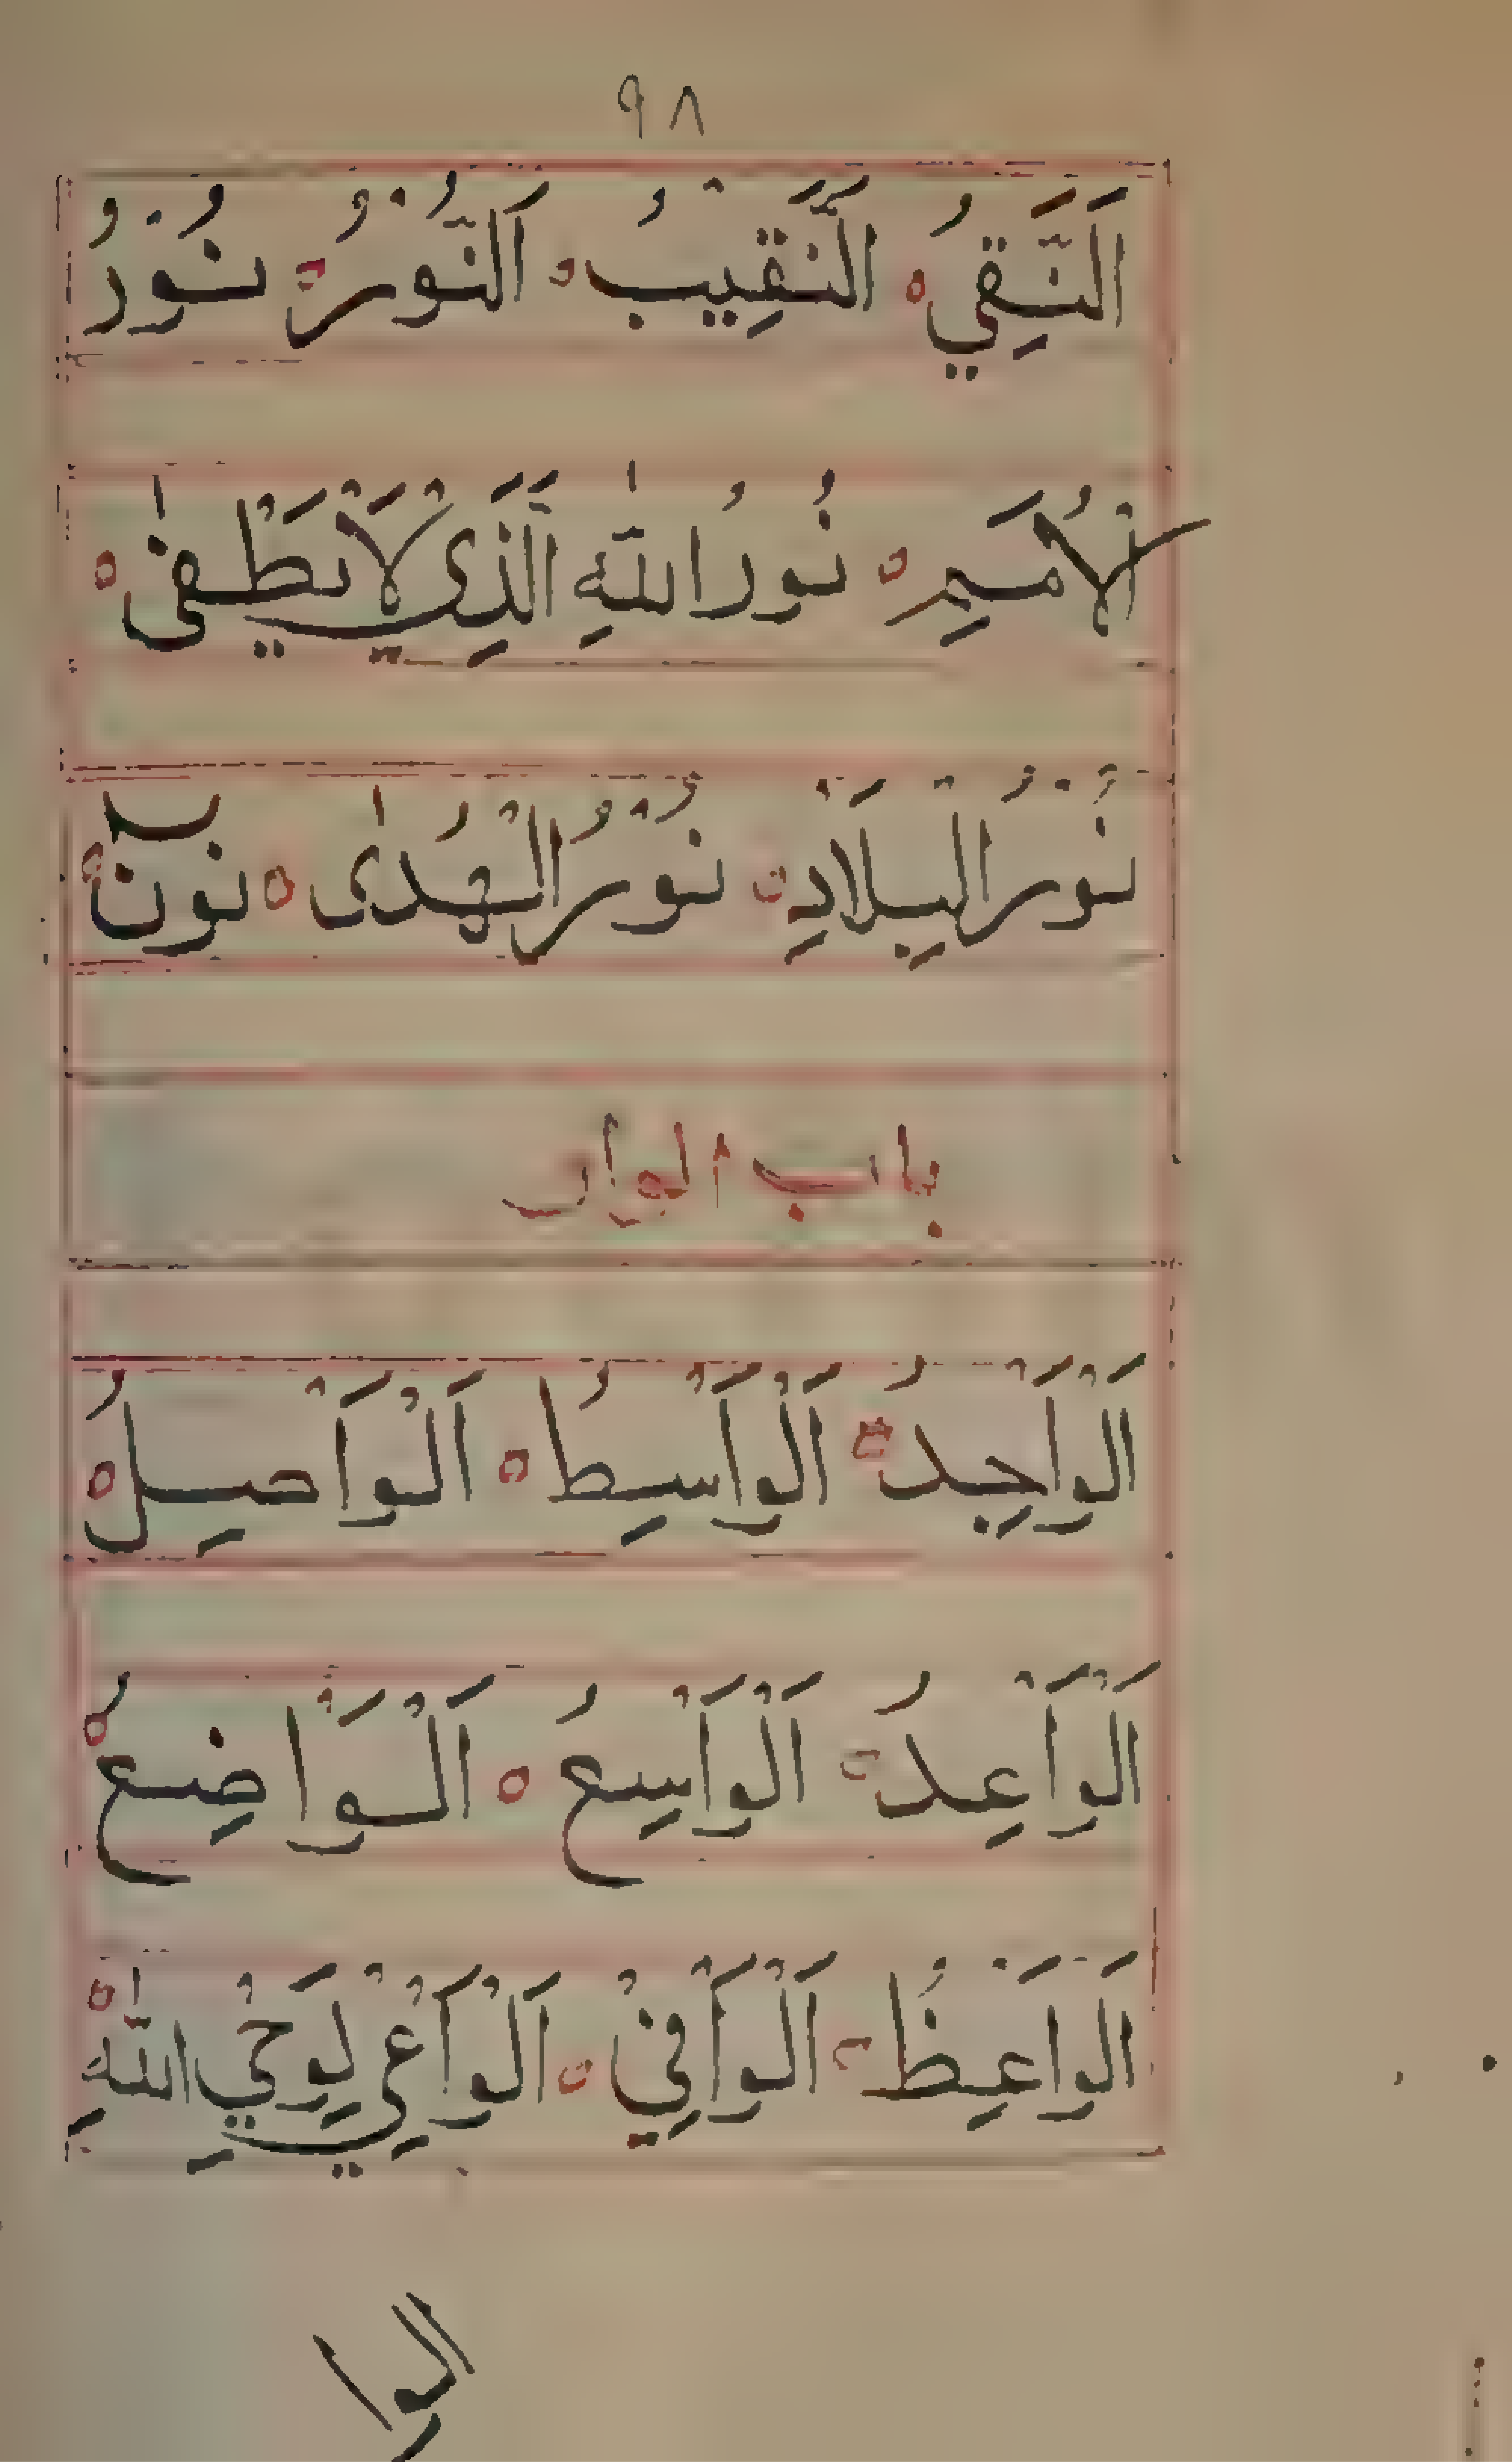 ٩٨
اَلنَّقِيُ ه اَلنَّقِيْبُ ه اَلنُّوْرُ ه نُوْرُ
الْاُمَمِ ه نُورُ اللّٰهِ الَّذِي لَا يَطْفٰى ه
نُوْرُ الْبِلَادِ ه نُوْرُ الْهُدٰى ه نون ه
باب الواو
اَلْوَاْجِدُ ه اَلْوَاْسِطُ ه اَلْوَاْصِلُ ه
اَلْوَاْعِدُ ه اَلْوَاْسِعُ ه اَلْوَاْضِعُ ه
اَلْوَاْعِظُ ه اَلْوَاْفِيْ ه اَلْوَاْعِيْ لِوَحْيِ اللّٰهِ ه
الوا